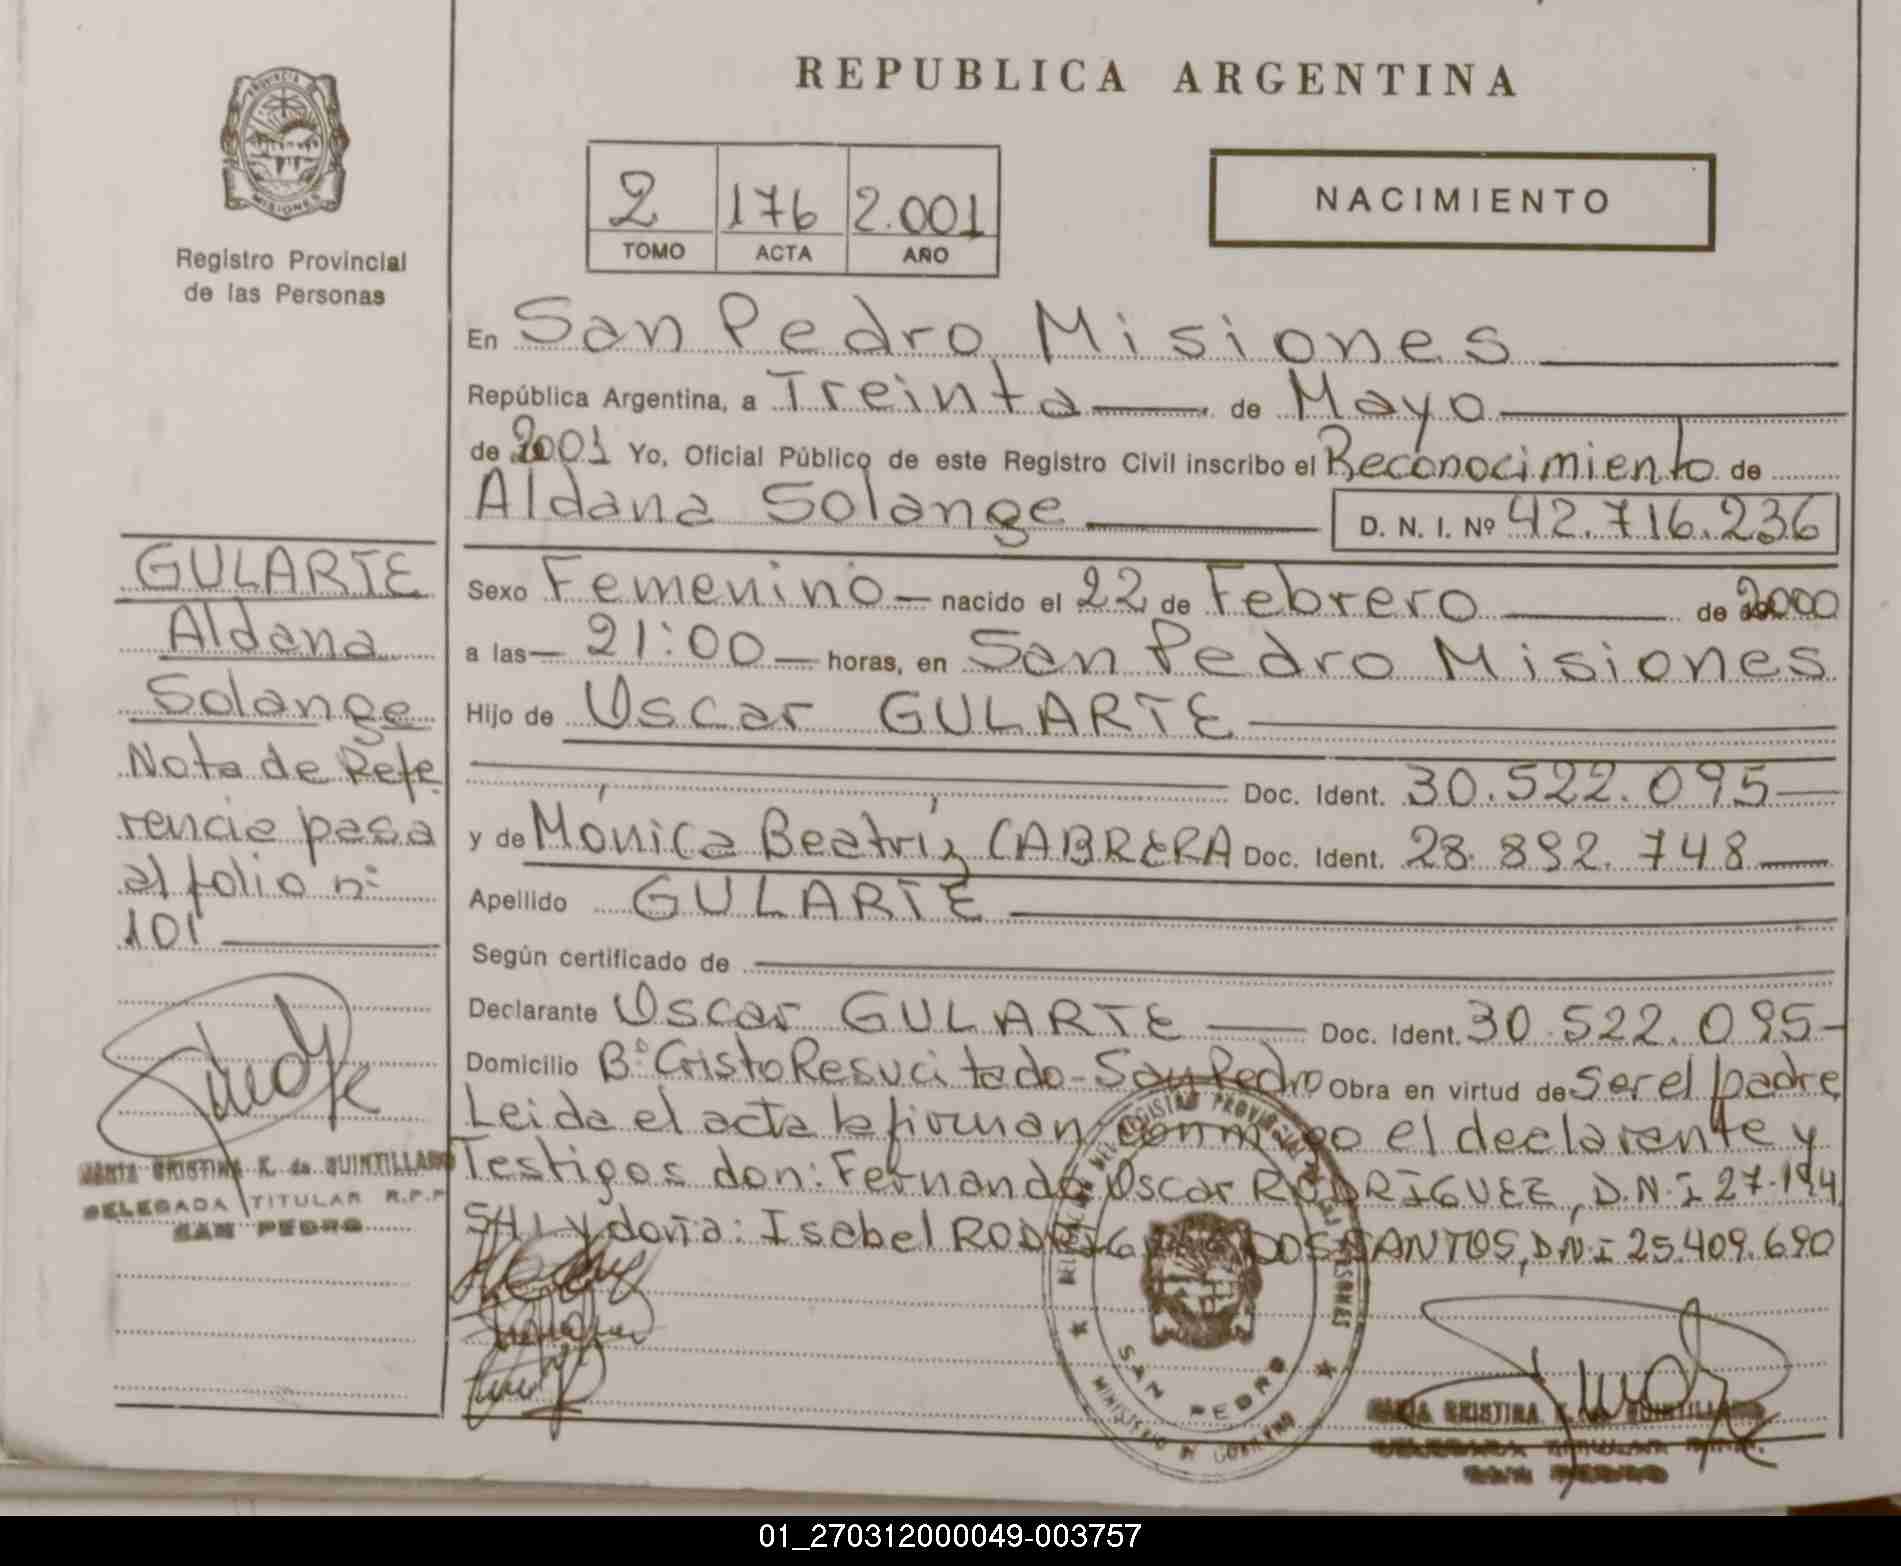 REPUBLICA ARGENTINA
PROVINCIA
MISIONES
Registro Provincial
de las Personas
2 176 2.001
TOMO ACTA AÑO
NACIMIENTO
En San Pedro Misiones
República Argentina, a Treinta de Mayo
de 2001 Yo, Oficial Público de este Registro Civil inscribo el Reconocimiento de
Aldana Solange D. N. I. Nº 42.716.236
Sexo Femenino nacido el 22 de Febrero de 2000
a las 21:00 horas, en San Pedro Misiones
Hijo de Oscar GULARTE
Doc. Ident. 30.522.095
y de Mónica Beatríz CABRERA Doc. Ident. 28.892.748
Apellido GULARTE
Según certificado de
Declarante Oscar GULARTE Doc. Ident. 30.522.095
Domicilio Bº Cristo Resucitado - San Pedro Obra en virtud de Ser el padre
Leida el acta la firman conmigo el declarante y
Testigos don: Fernando Oscar RODRIGUEZ, D.N.I 27.194.
y doña: Isabel DOS SANTOS, D.N.I 25.409.690
GULARTE
Aldana
Solange
Nota de Refe
rencia pasa
al folio nº
101
CRISTINA K. de QUINTILLAN
DELEGADA TITULAR R.P.P
SAN PEDRO
SAN PEDRO
CRISTINA QUINTILLAN
SAN PEDRO
01_270312000049-003757